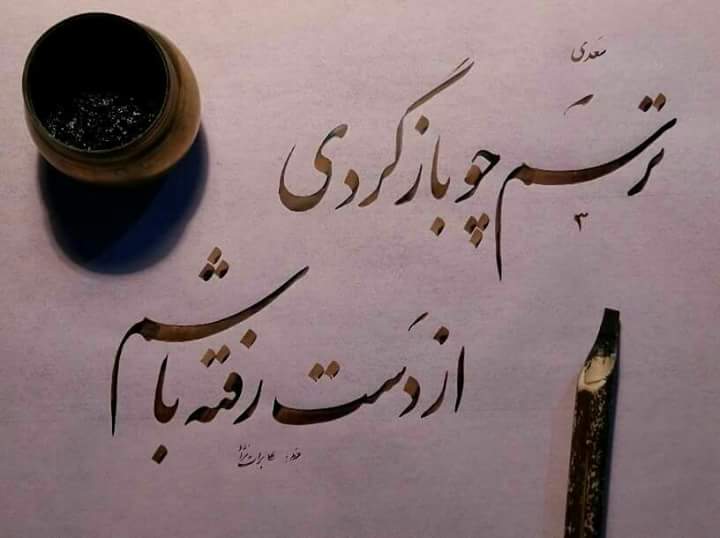 سعدی
ترسم چو بازگردی
از دست رفته باشم